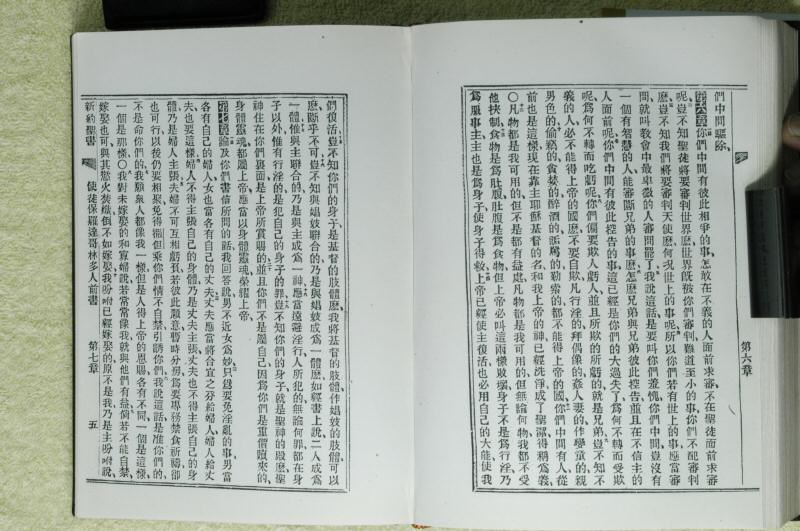 們中間驅除、
第六章你們中間有彼此相爭的事、怎敢在不義的人面前求審、不在聖徒面前求審
呢、豈不知聖徒將要審判世界麽、世界旣被你們審判、難道至小的事、你們不配審判
麽、豈不知我們將要審判天使麽、何況世上的事呢、所以你們若有世上的事應當審
問、就叫敎會中最卑微的人審問罷了、我說這話、是要叫你們羞愧、你們中間豈沒有
一個有智慧的人、能審斷兄弟的事麽、怎麽兄弟與兄弟彼此控告、並且在不信主的
人面前呢、你們中間有彼此控告的事、這已經是你們的大過失了、爲何不轉而受欺
呢、爲何不轉而吃虧呢、你們偏要欺人虧人、並且所欺的所虧的、就是兄弟、豈不知不
義的人、必不能得上帝的國麽、不要自欺、凡行淫的、拜偶像的、姦人妻的、作孌童的、親
男色的、偷竊的、貪婪的、醉酒的、詬罵的、勒索的、都不能得上帝的國、你們中間有人、從
前也是這樣、現在靠主耶穌基督的名、和我上帝的神、已經洗淨成了聖潔、得稱爲義、
○凡物都是我可用的、但不是都有益處、凡物都是我可用的、但無論何物、我都不受
他挾制、食物是爲肚腹、肚腹是爲食物、但上帝必叫這兩樣敗壞、身子不是爲行淫、乃
爲服事主、主也是爲身子、使身子得救、上帝已經使主復活、也必用自己的大能使我
第六章
們復活、豈不知你們的身子、是基督的肢體麽、我將基督的肢體、作娼妓的肢體、可以
麽、斷乎不可、豈不知與娼妓聯合的、乃是與娼妓成爲一體麽、如經書上說、二人成爲
一體、惟與主聯合的、乃是與主成爲一神、應當遠避淫行、人所犯的、無論何罪、都在身
子以外、惟有行淫的、是犯自己的身子的罪、豈不知你們的身子、就是聖神的殿麽、聖
神住在你們裏面、是上帝所賞賜的、並且你們不是屬自己、因爲你們是重價贖來的、
身體靈魂、都屬上帝、應當以身體靈魂榮耀上帝、
第七章論及你們書信所問的話、我回答說、男不近女爲妙、只爲要免淫亂的事、男當
各有自己的婦人、女也當各有自己的丈夫、丈夫應當將合宜之分給婦人、婦人給丈
夫也要這樣、婦人不得主張自己的身體、乃是丈夫主張、丈夫也不得主張自己的身
體、乃是婦人主張、夫婦不可互相虧負、若彼此願意暫時分房、爲要專務禁食祈禱、卻
也可行、以後仍要相聚、免得撒但乘你們情不自禁、引誘你們、我說這話、是准你們的、
不是命你們的、我願衆人都像我一樣、但是人得上帝的恩賜、各有不同、一個是這樣、
一個是那樣、○我對未嫁娶的、和寡婦說、若常常像我、就與他們有益、倘若不能自禁、
嫁娶也可、與其慾火焚燒、倒不如嫁娶、我吩咐已經嫁娶的、原不是我、乃是主吩咐說、
新約聖書 使徒保羅達哥林多人前書 第七章 五